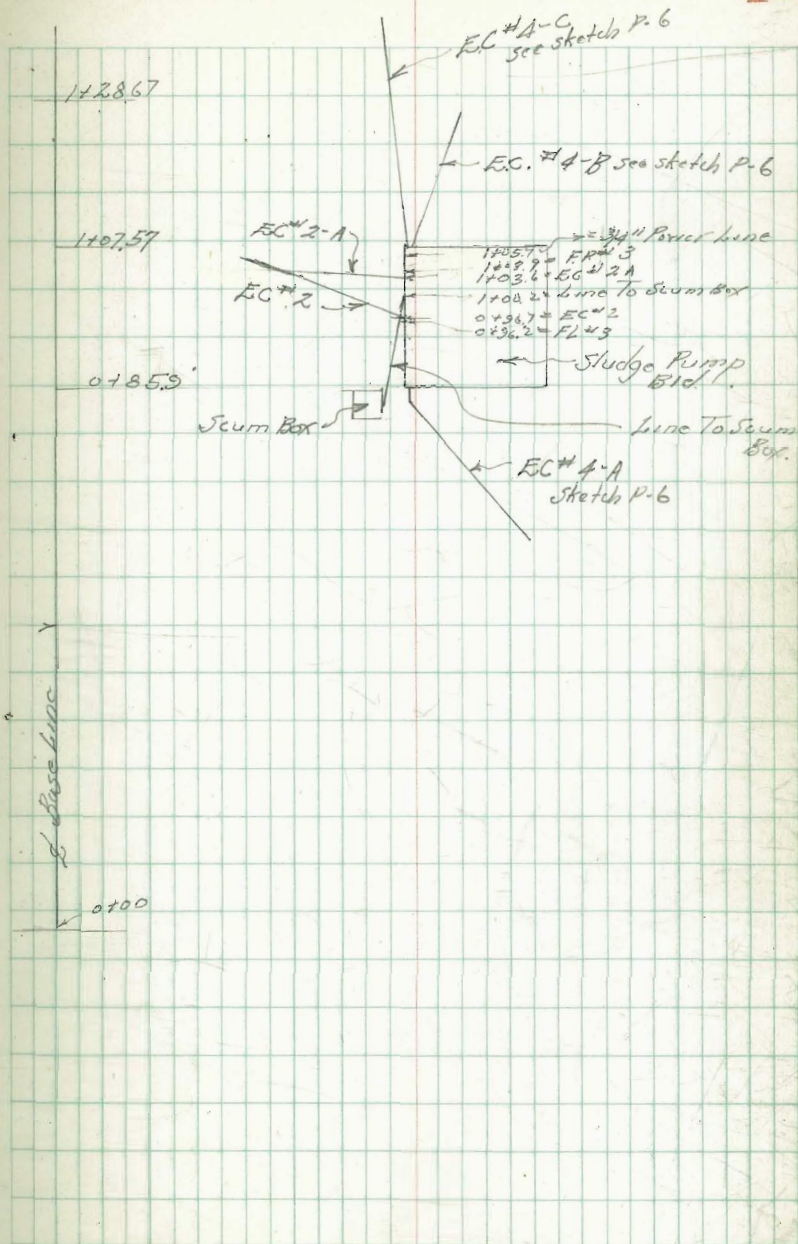 EC #4-C
see sketch P-6
1+28.67
E.C. #4-B see sketch P-6
1+07.57
EC #2-A
3/4" Power Line
1+05.7 =
= F.P. #3
1+03.6 = EC #2A
EC #2
1+00.2 = Line To Scum Box
0+96.7 = EC #2
0+96.2 = FL #3
Sludge Pump
Bld.
0+85.9
Scum Box
Line To Scum
Box.
EC #4-A
sketch P-6
Base Line
0+00